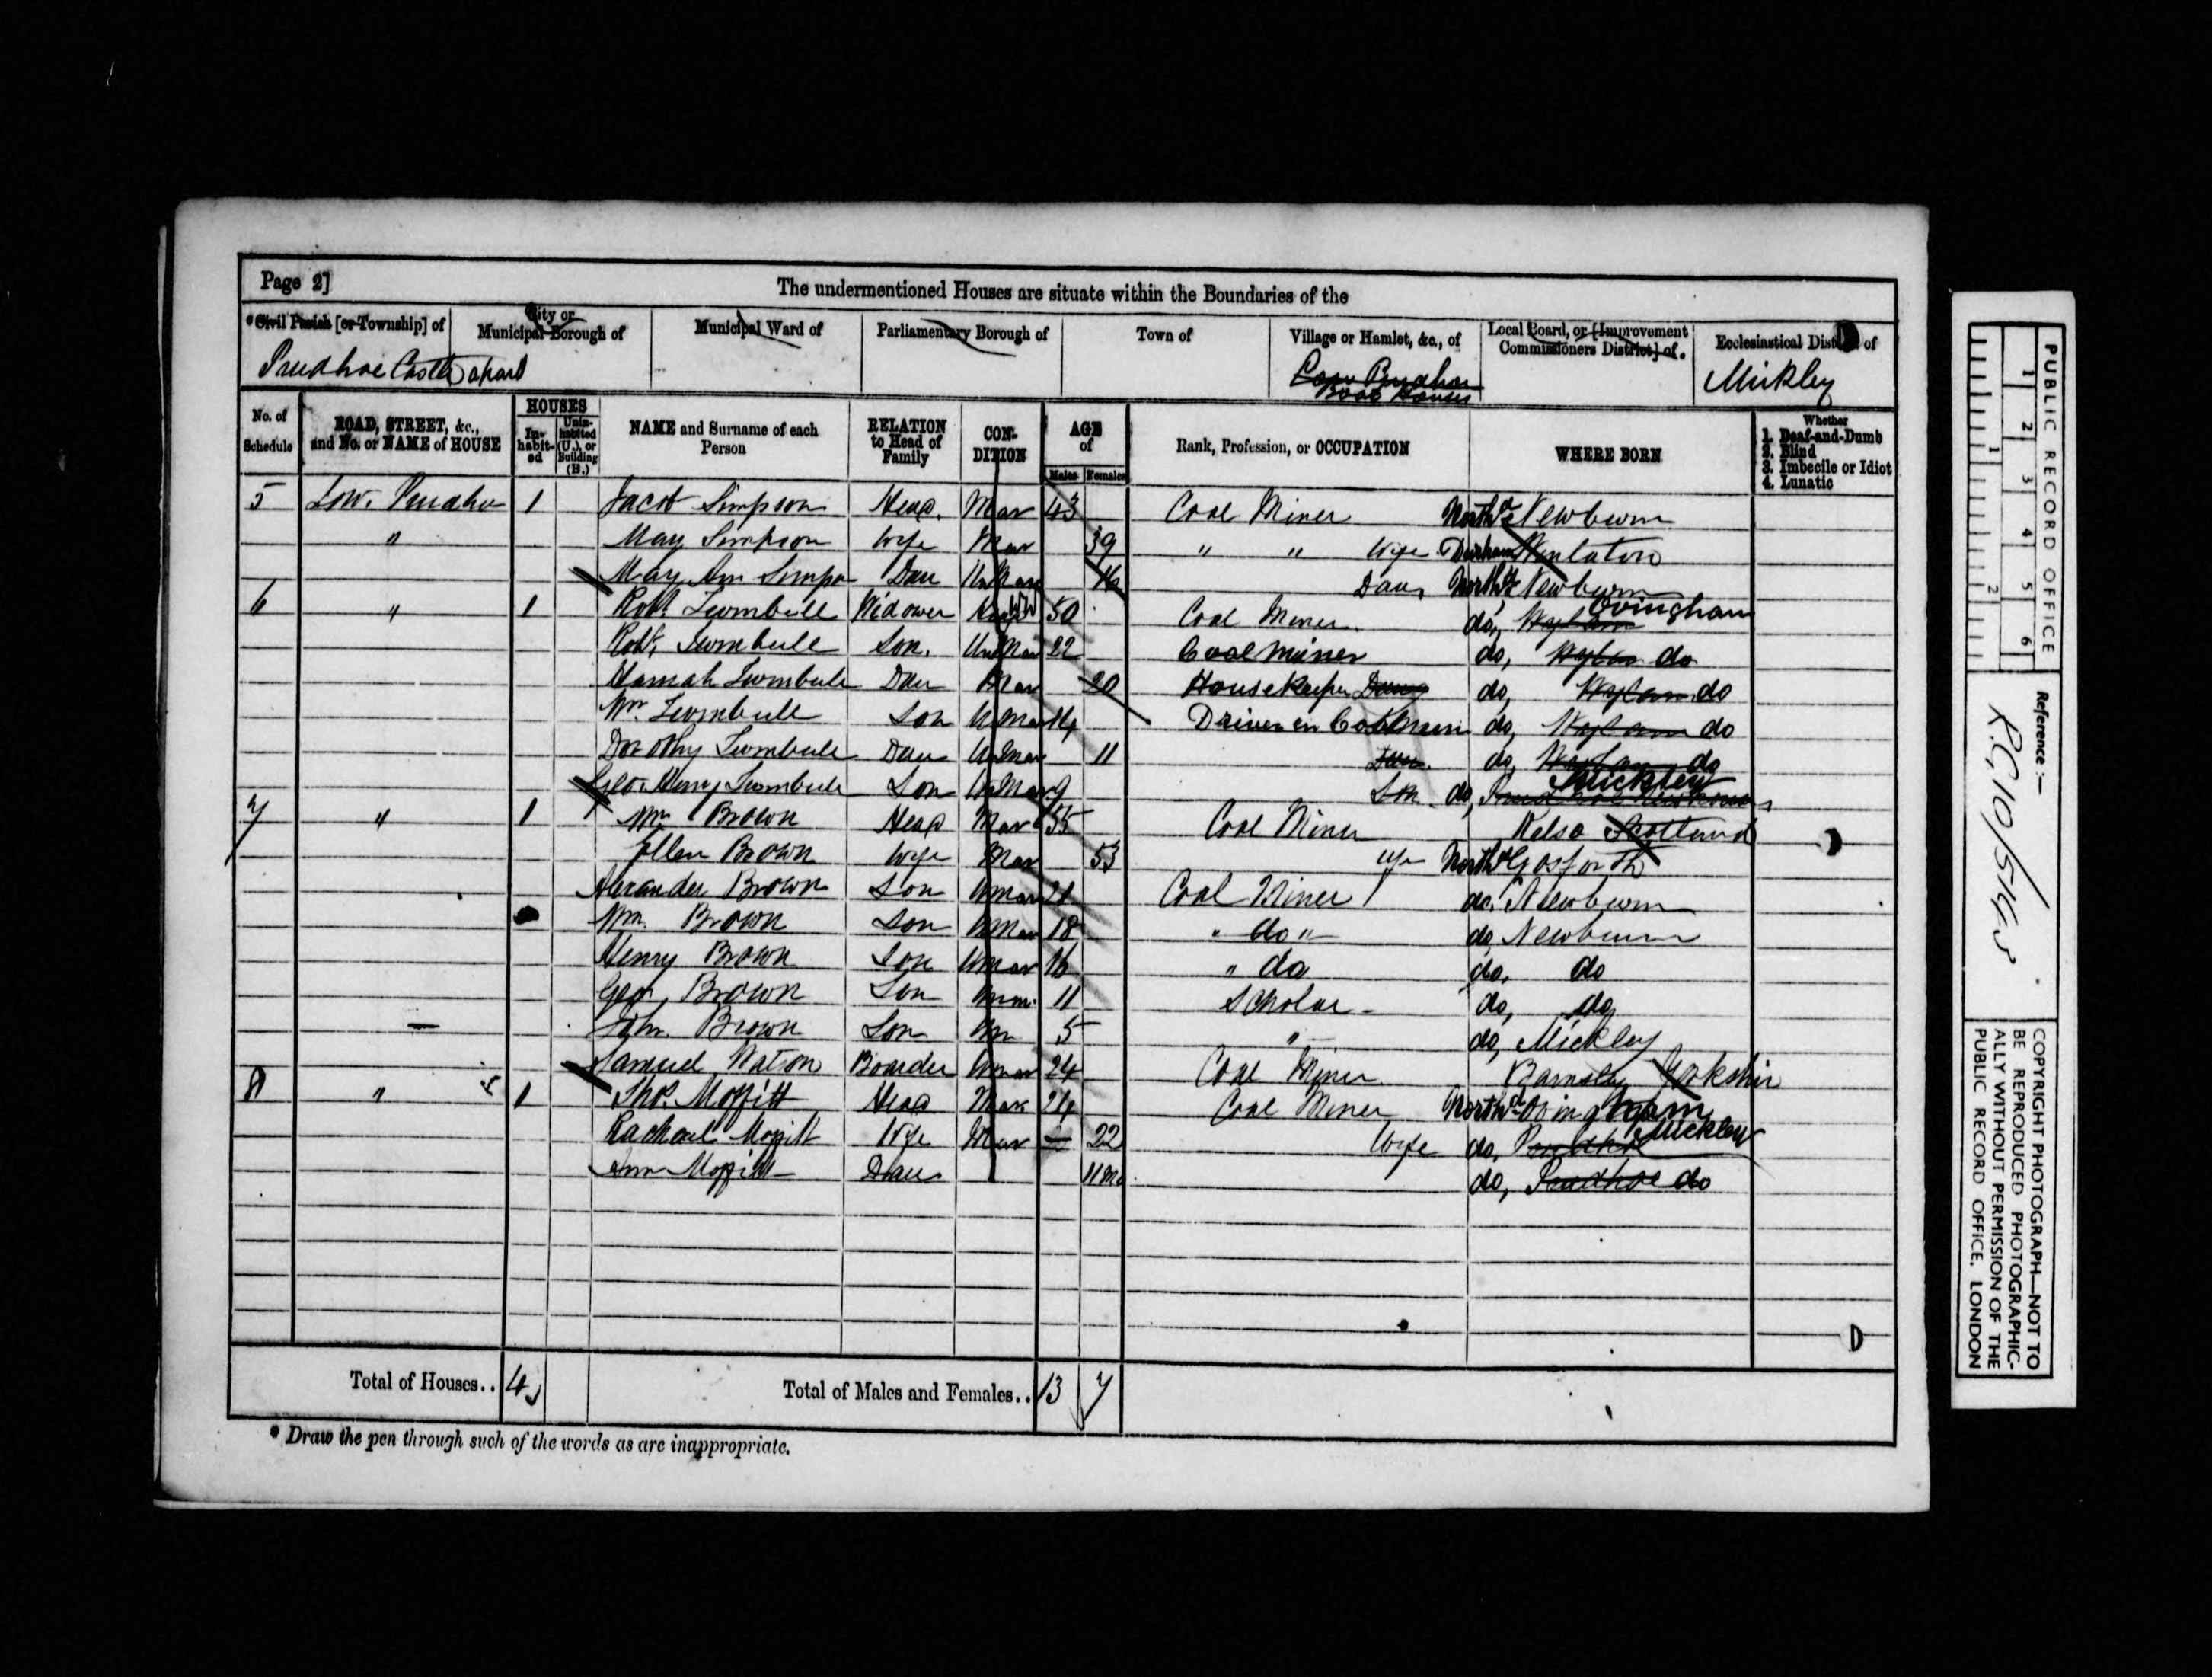 Page 2]
The undermentioned Houses are situate within the Boundaries of the
*Civil Parish [or Township] of
City or Municipal Borough of
Municipal Ward of
Parliamentary Borough of
Town of
Village or Hamlet, &c., of
Local Board, or [Improvement Commissioners District] of.
Ecclesiastical District of
Prudhoe Castle
Low Prudhoe
Mickley
No. of Schedule
ROAD, STREET, &c., and No. or NAME of HOUSE
HOUSES
In-habit-ed
Unin-habited (U.), or Building (B.)
NAME and Surname of each Person
RELATION to Head of Family
CON-DITION
AGE of
Males
Females
Rank, Profession, or OCCUPATION
WHERE BORN
Whether
1. Deaf-and-Dumb
2. Blind
3. Imbecile or Idiot
4. Lunatic
5 Low. Prudhoe 1 Jacob Simpson Head. Mar 43 Coal Miner North'd Newburn
" Mary Simpson Wife Mar 39 " " Wife Durham Winlaton
Mary Ann Simpson Dau UnMar 16 Daur North'd Newburn
6 " 1 Robt. Turnbull Widower 50 Coal Miner. do, Wylam Ovingham
Robt. Turnbull Son. UnMar 22 Coal miner do, Wylam do
Hannah Turnbull Dau Mar 20 Housekeeper Daur do, Wylam do
Wm. Turnbull Son UnMar 14 Driver in Coal Mine do, Wylam do
Dorothy Turnbull Dau UnMar 11 Dau. do, Wylam do
Geo. Henry Turnbull Son UnMar 9 Son do, Mickley
7 " 1 Wm. Brown Head Mar 55 Coal Miner Kelso Scotland
Ellen Brown Wife Mar 53 Wife North'd Gosforth
Alexander Brown Son UnMar 21 Coal Miner do. Newburn
Wm. Brown Son UnMar 18 " do " do, Newburn
Henry Brown Son UnMar 16 " do do, do
Geor. Brown Son Unm. 11 Scholar do, do,
John. Brown Son Un 5 " do, Mickley
Samuel Watson Boarder Unmar 24 Coal Miner. Barnsley Yorkshir
8 " 1 Tho's. Moffitt Head Mar 24 Coal Miner North'd Ovingham
Rachael Moffitt Wife Mar 22 Wife do, Prudhoe Mickley
Ann Moffitt Dau 11 mo do, Prudhoe do
Total of Houses.. 4
Total of Males and Females.. 13 7
* Draw the pen through such of the words as are inappropriate.
PUBLIC RECORD OFFICE
1 2 3 4 5 6
1 2
Reference :—
R.G. 10/5148
COPYRIGHT PHOTOGRAPH—NOT TO
BE REPRODUCED PHOTOGRAPHIC-
ALLY WITHOUT PERMISSION OF THE
PUBLIC RECORD OFFICE, LONDON